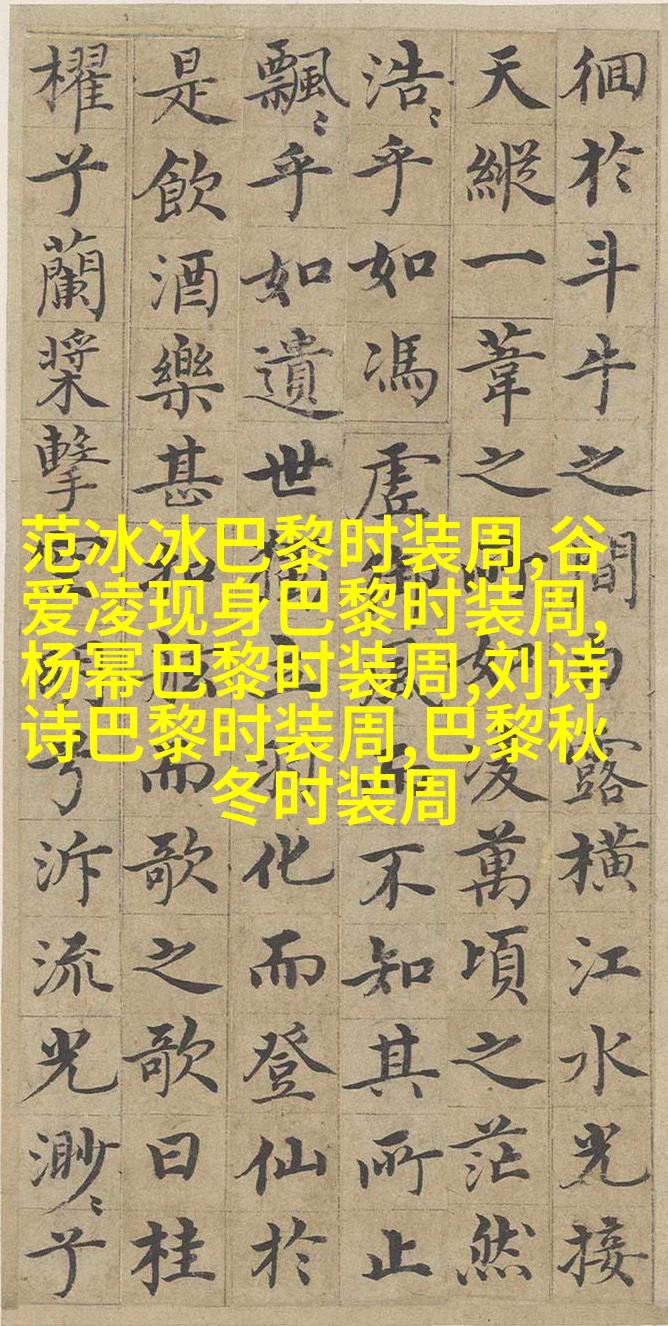 徊於斗牛之間白露橫江水光接
天縱一葦之所如凌萬頃之茫然
浩〻乎如馮虛御風而不知其所止
飄〻乎如遺世獨立羽化而登仙於
是飲酒樂甚扣舷而歌之歌曰桂
櫂兮蘭槳擊空明兮泝流光渺〻兮
范冰冰巴黎时装周,谷
爱凌现身巴黎时装周,
杨幂巴黎时装周,刘诗
诗巴黎时装周,巴黎秋
冬时装周